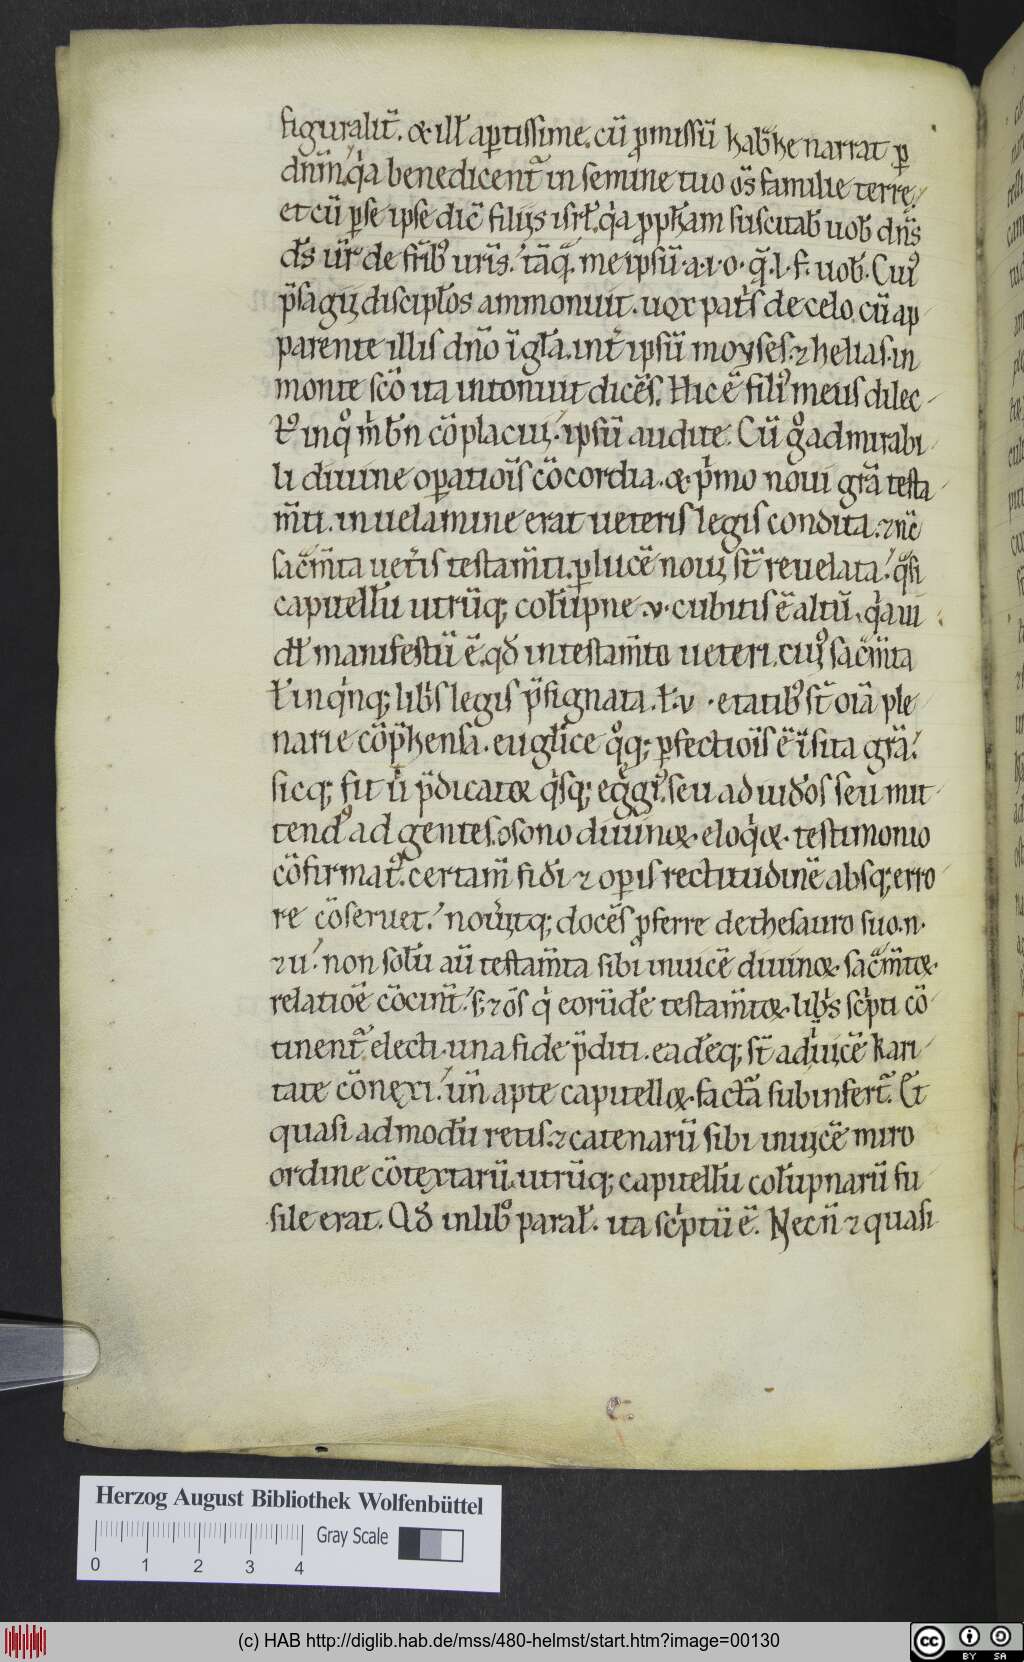 figuralit̄. & ill' aptissime. cū pmissū habr̄he narrat p
dn̄m. qa benedicent̄ in semine tuo os̄ familie terre.
et cū p se ipse dic̄ filijs isrł. qa ppħam suscitab̄ uob̄ dn̄s
ds̄ ur̄ de frīb; uris̄. tāq̄. me ipsū. a. i. o. q̄. l. f. uob̄. Cui9
p̄sagij discipłos ammonuit. uox patis de celo. cū ap
parente illis dn̄o ī gła. int̄ ipsū moyses. & helias. in
monte scō ita intonuit dicēs. Hic ē fili9 meus dilec
t9 in q° m bn̄ cōplacuit. ipsū audite. Cū g° admirabi
li diuine opatiois̄ cōcordia. & pmo noui grā testa
m̄ti. in uelamine erat ueteris legis condita. & nc̄
sacm̄ta uetis testam̄ti. p lucē noui st̄ reuelata. qsi
capitellū utrūq; colūpne .v. cubitis ē altū. qa ui
dł manifestū ē. qd̄ in testam̄to ueteri. cui9 sacm̄ta
ł in qnq; libs legis p̄signata. ł .v. etatib9 st̄ oiā ple
narie cōp̄hensa. euglice q°q; pfectiois̄ ē īsita grā.
sicq; fit ū p̄dicator qsq; egg9. seu ad iudōs seu mit
tend9 ad gentes. osono diuinoꝝ eloqoꝝ testimonio
cōfirmat9. certam̄ fidī & opis rectitudinē absq; erro
re cōseruet. nouitq; docēs pferre de thesauro suo. n.
& u. non solū aū testam̄ta sibi inuicē diuinoꝝ sacm̄toꝝ
relatiōe cōcinūt. s; & os̄ q eorūdē testam̄toꝝ libs scpti cō
tinent̄. electi. una fide p̄diti. eadēq; st̄ aduicē kari
tate cōnexi. un̄ apte capitelloꝝ factā subinfert̄. Et
quasi ad modū retis. & catenarū sibi inuicē miro
ordine cōtextarū. utrūq; capitellū colūpnarū fu
sile erat. Qd̄ in lib° parał. ita scptū ē. Necn̄ & quasi
Herzog August Bibliothek Wolfenbüttel
Gray Scale
0 1 2 3 4
(c) HAB http://diglib.hab.de/mss/480-helmst/start.htm?image=00130
cc BY SA